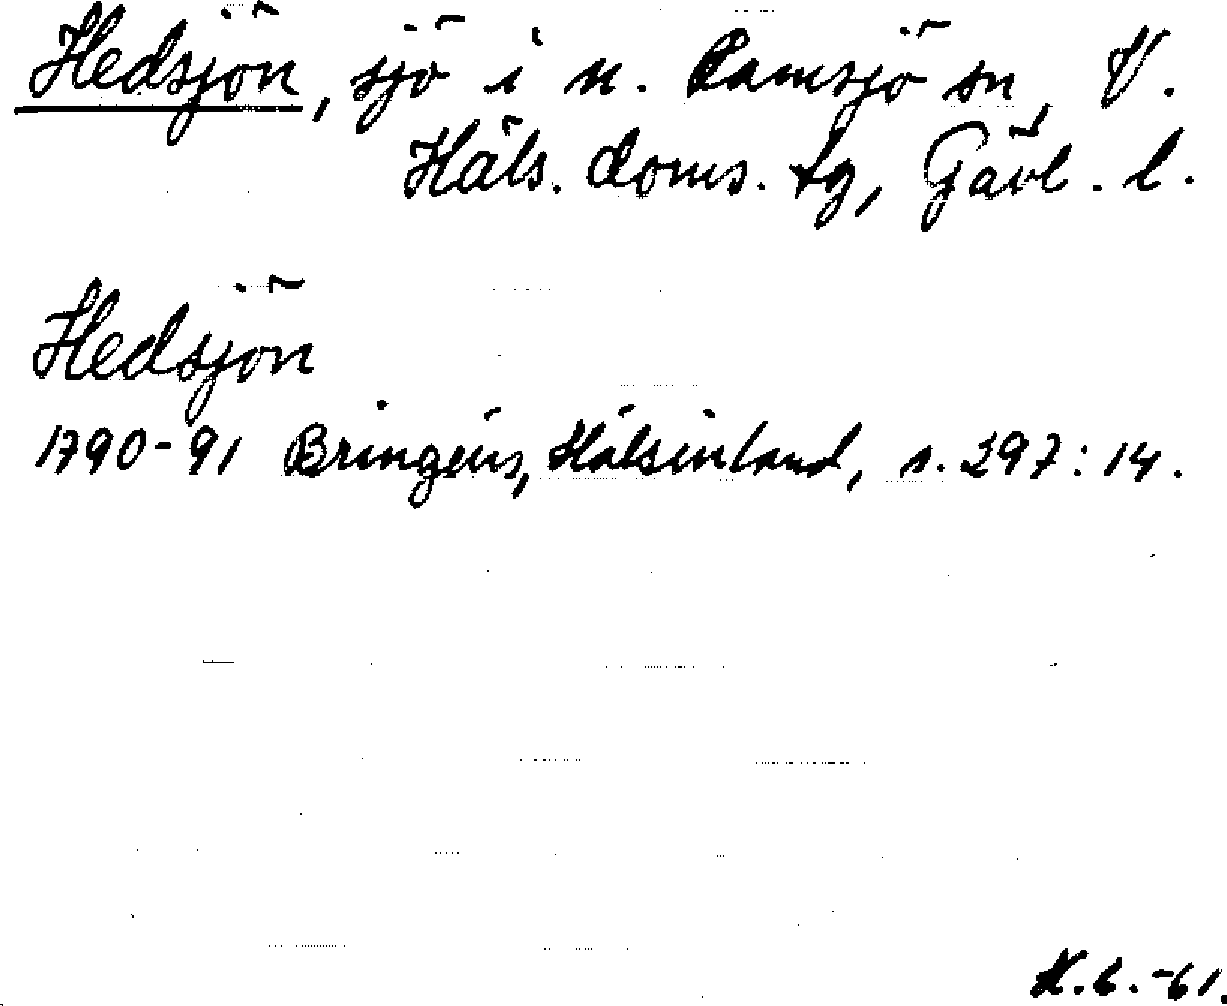 Hedsjön, sjö i n. Ramsjö sn, V.
Häls. doms. tg, Gävl. l.
Hedsjön
1790-91 Bringéus, Hälsinland, s. 297:14.
K.L.-61.